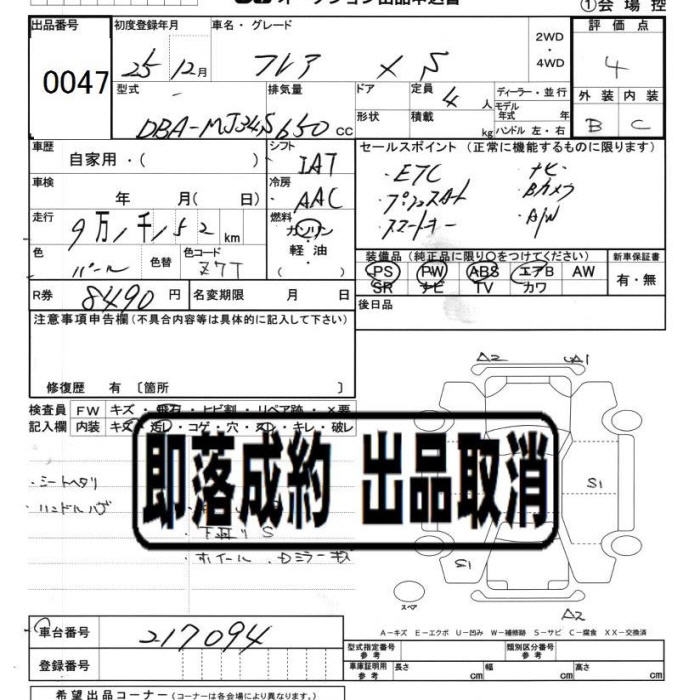 ①会場控
出品番号
0047
初度登録年月
25年12月
車名・グレード
フレア XS
2WD
・
4WD
評価点
4
外装 内装
B C
型式
DBA-MJ34S
排気量
650 cc
ドア
形状
定員
4 人
積載
kg
ディーラー・並行
モデル
年式 年
ハンドル 左・右
車歴
自家用・( )
シフト
IAT
車検
年 月( 日)
冷房
AAC
走行
9万1千152km
燃料
ガソリン
軽・油
( )
色
パール
色替
色コード
Z7T
R券
8490 円
名変期限 月 日
セールスポイント (正常に機能するものに限ります)
・ETC ・ナビ
・プッシュスタート ・Bカメラ
・スマートキー ・A/W
装備品(純正品に限り〇をつけてください)
PS PW ABS エアB AW
SR ナビ TV カワ
新車保証書
有・無
後日品
注意事項申告欄(不具合内容等は具体的に記入して下さい)
修復歴 有 〔箇所 〕
検査員 FW キズ・飛石・ヒビ割・リペア跡・×要
記入欄 内装 キズ・汚レ・コゲ・穴・スレ・キレ・破レ
即落成約 出品取消
・シートヘタリ
・ハンドルハゲ
・下廻りS
・ホイール・Dミラーキズ
A2 A1
S1
S1
スペア
A2
A−キズ E−エクボ U−凹み W−補修跡 S−サビ C−腐食 XX−交換済
車台番号
217094
登録番号
型式指定番号
参考
類別区分番号
参考
車庫証明用
参考
長さ cm 幅 cm 高さ cm
希望出品コーナー(コーナーは各会場により異なります。)